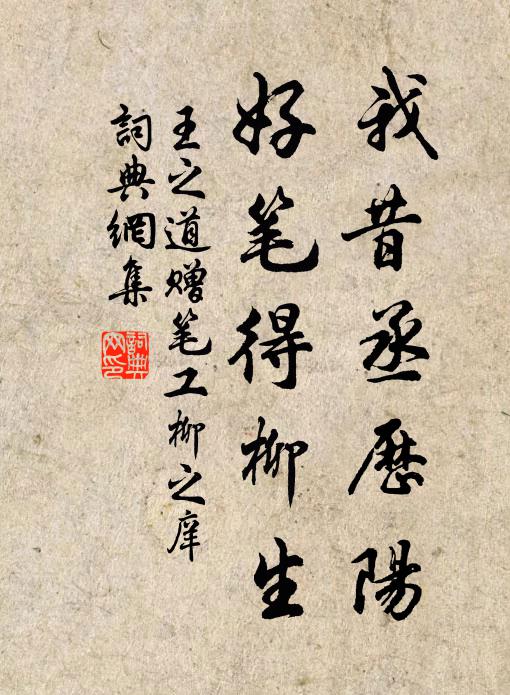 我昔丞歷陽
好笔得柳生
王之道赠笔工柳之庠
詞典網集
詞典網印